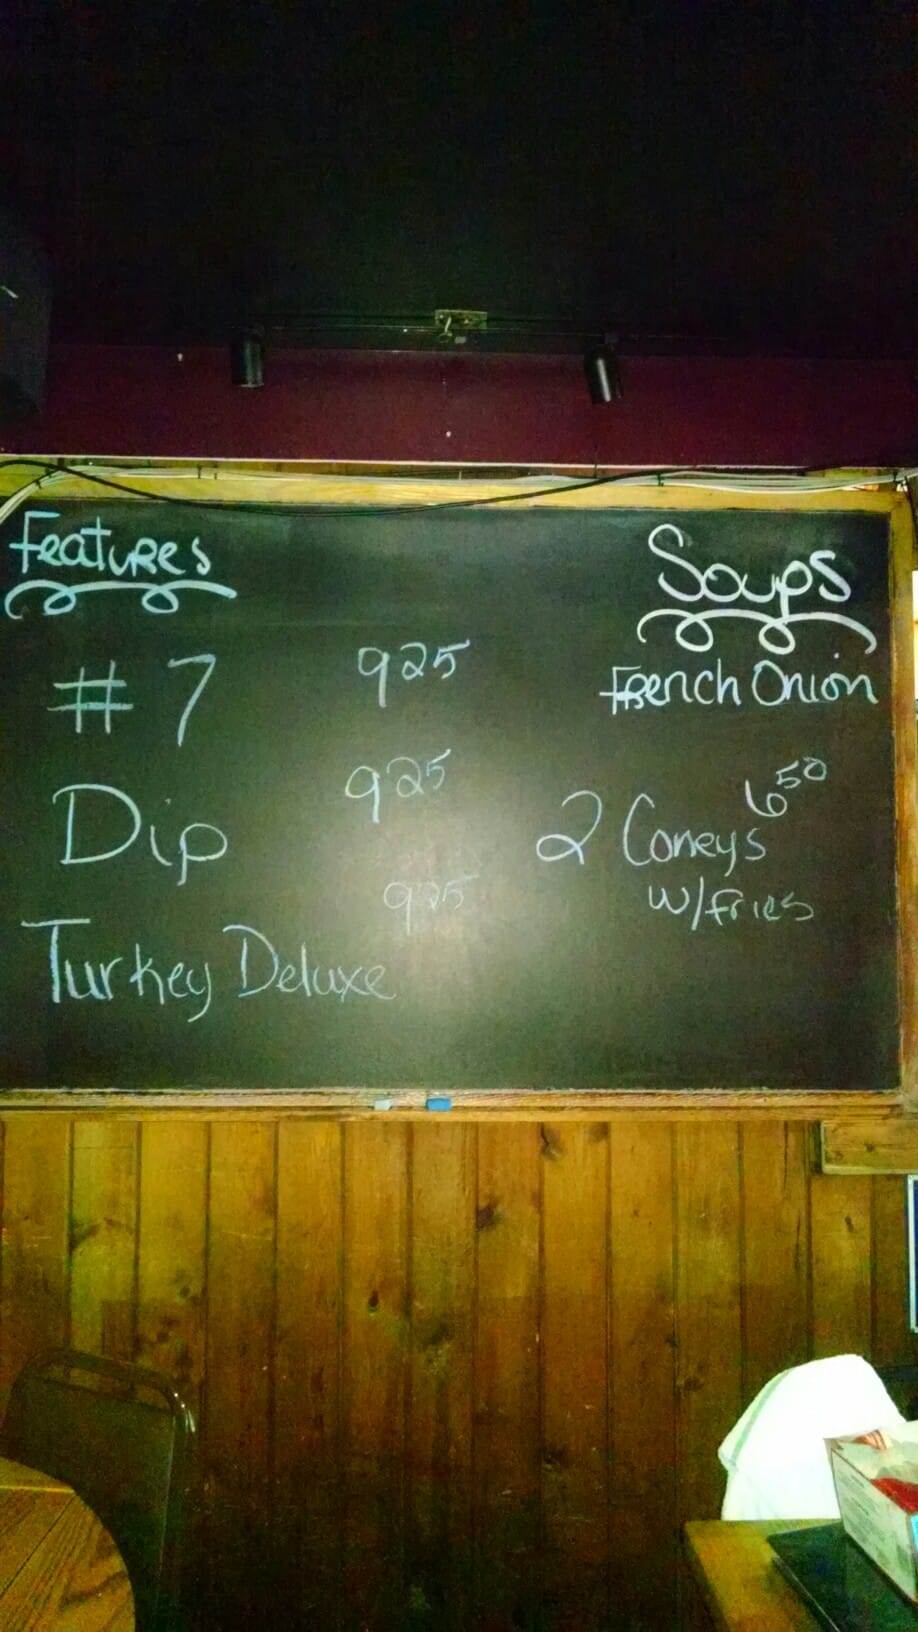 Features
# 7 925
Dip 925
Turkey Deluxe 925
Soups
French Onion
2 Coneys 650
w/fries